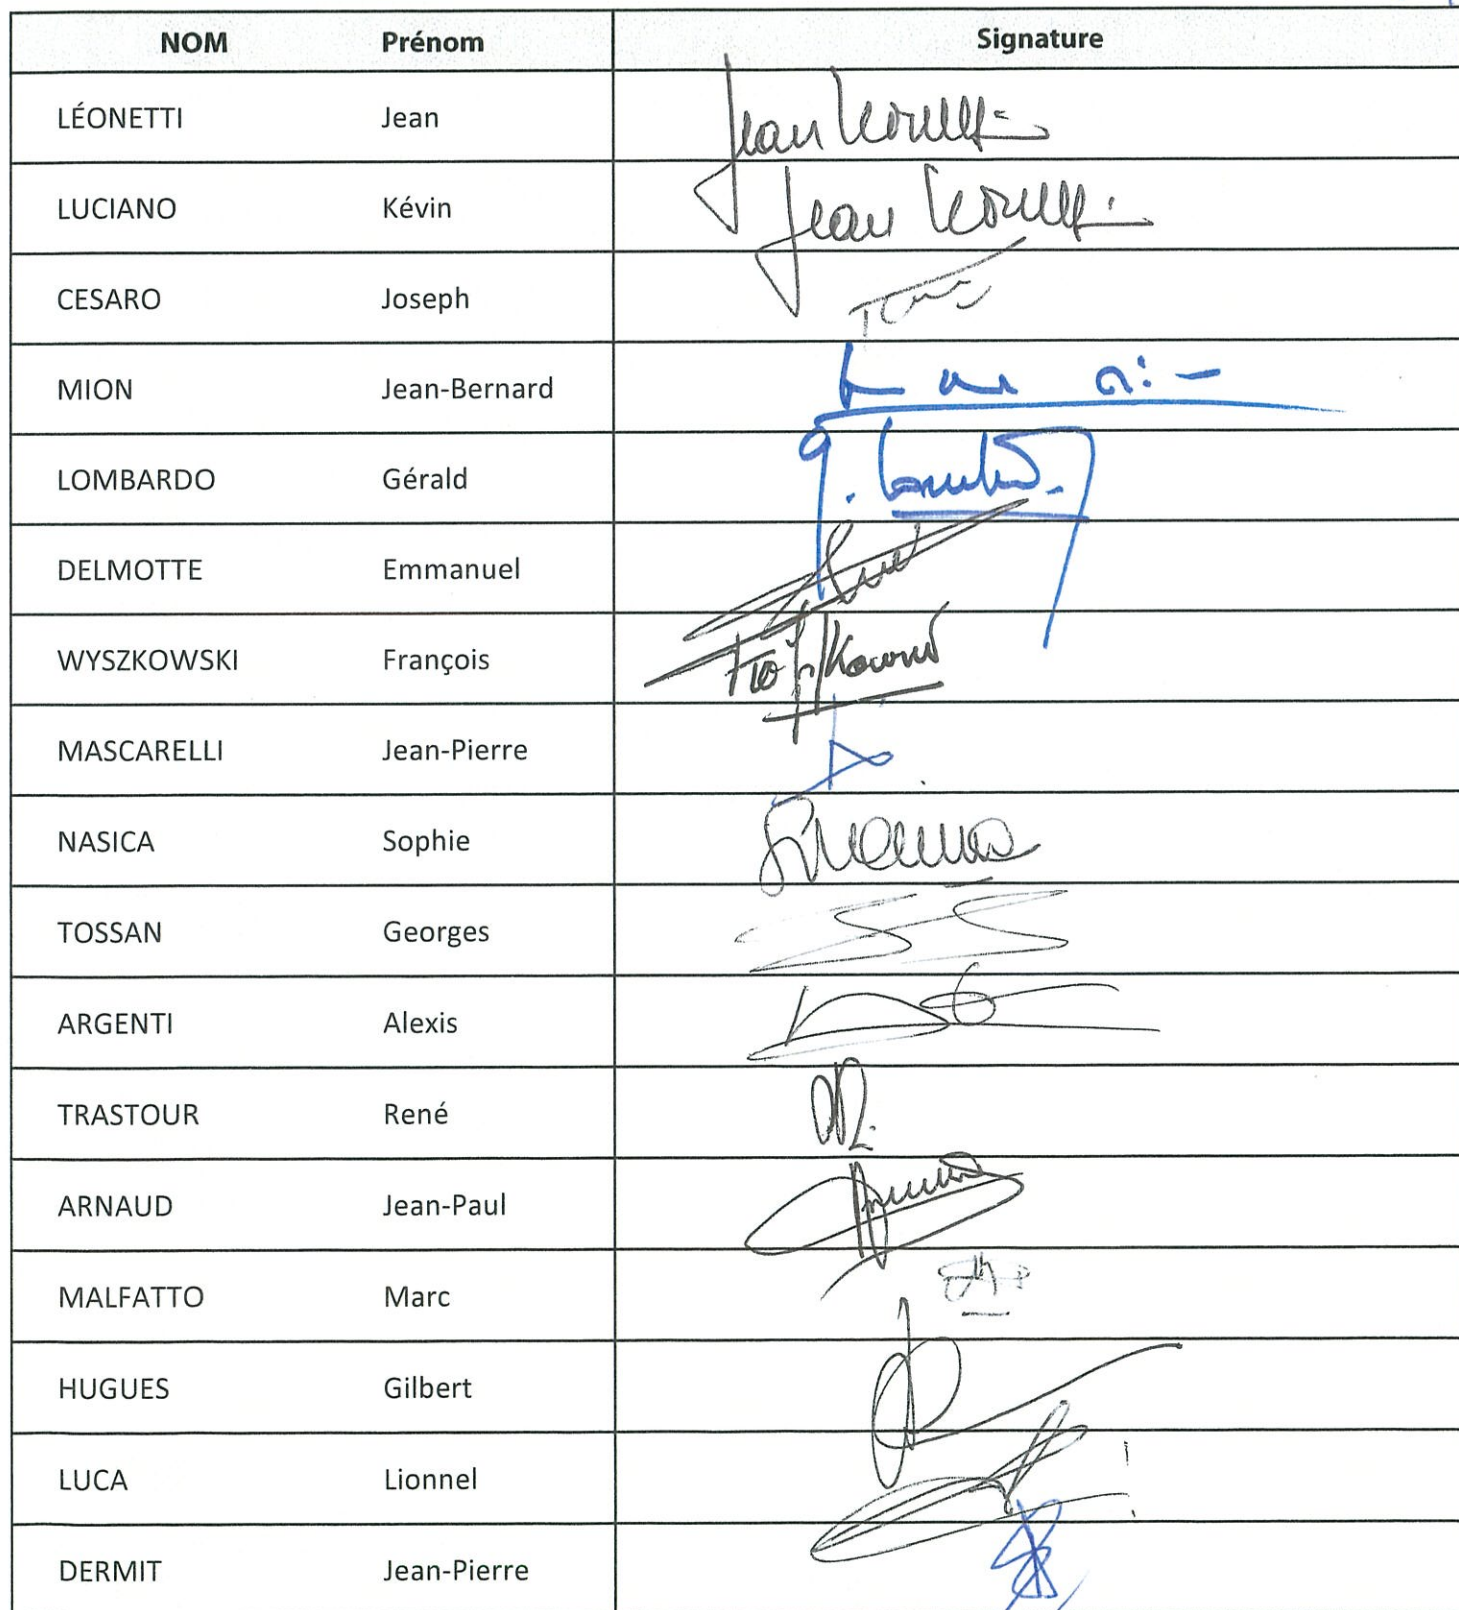 NOM Prénom Signature
LÉONETTI Jean Jean Leonetti
LUCIANO Kévin Jean Leonetti
CESARO Joseph
MION Jean-Bernard
LOMBARDO Gérald
DELMOTTE Emmanuel
WYSZKOWSKI François
MASCARELLI Jean-Pierre
NASICA Sophie
TOSSAN Georges
ARGENTI Alexis
TRASTOUR René
ARNAUD Jean-Paul
MALFATTO Marc
HUGUES Gilbert
LUCA Lionnel
DERMIT Jean-Pierre